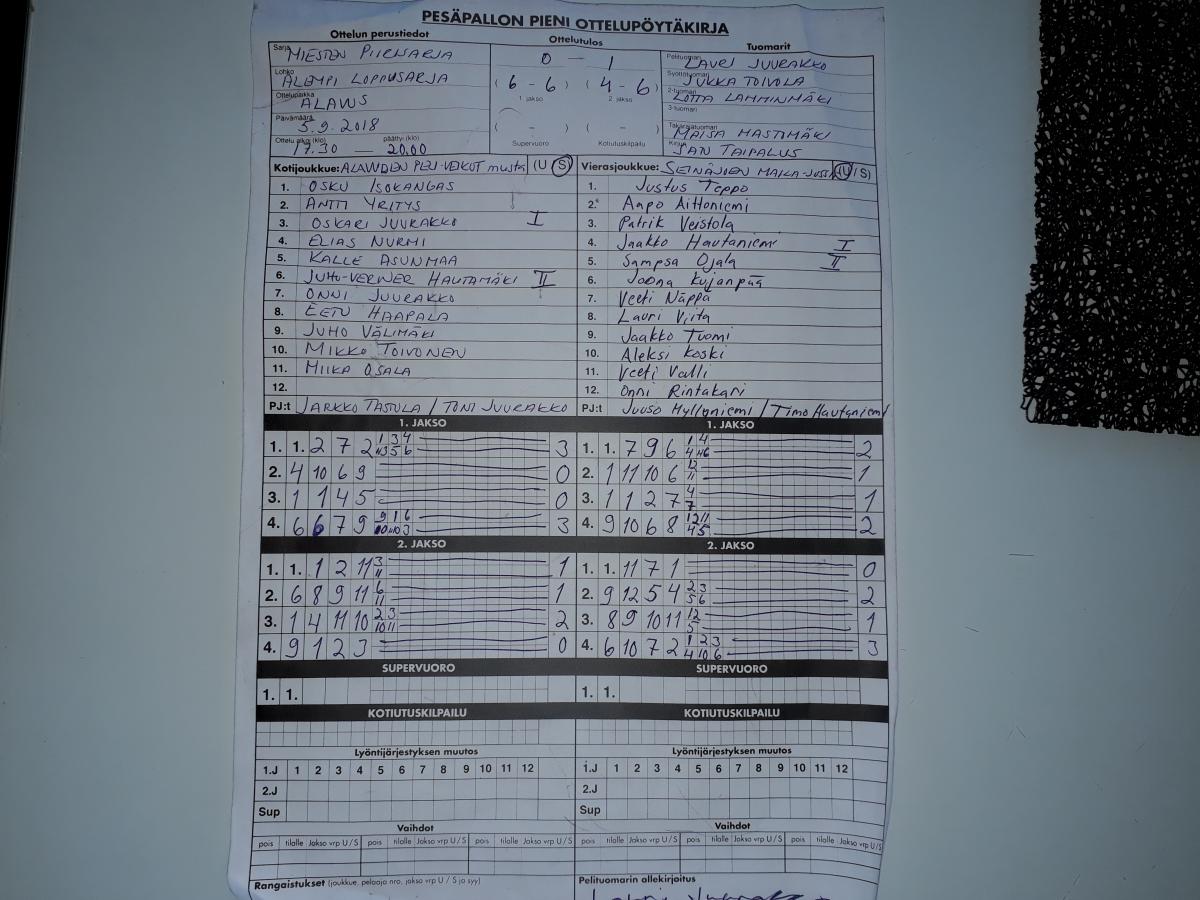 PESÄPALLON PIENI OTTELUPÖYTÄKIRJA
Ottelun perustiedot Ottelutulos Tuomarit
Sarja MIESTEN PIIRISARJA
Lohko ALEMPI LOPPUSARJA
Ottelupaikka ALAVUS
Päivämäärä 5.9.2018
Ottelu alkoi (klo) 17.30 — päättyi (klo) 20.00
0 — 1
(6 - 6) (4 - 6)
1. jakso 2. jakso
( - ) ( - )
Supervuoro Kotiutuskilpailu
Pelituomari LAURI JUURAKKO
Syöttötuomari JUKKA TOIVOLA
2-tuomari LOTTA LAMMINMÄKI
3-tuomari
Takarajatuomari MAISA HASTIMÄKI
Kirjuri JAN TAIPALUS
Kotijoukkue: ALAVUDEN PESÄ-VEIKOT musta (U / S)
1. OSKU ISOKANGAS
2. ANTTI YRITYS
3. OSKARI JUURAKKO I
4. ELIAS NURMI
5. KALLE ASUNMAA
6. JUHO-VERNER HAUTAMÄKI II
7. ONNI JUURAKKO
8. EETU HAAPALA
9. JUHO VÄLIMÄKI
10. MIKKO TOIVONEN
11. MIIKA OSALA
12.
PJ:t JARKKO TASTULA / TONI JUURAKKO
Vierasjoukkue: SEINÄJOEN MAILA-JUSSIT (U / S)
1. Justus Teppo
2. Aapo Aittoniemi
3. Patrik Veistola
4. Jaakko Hautaniemi I
5. Sampsa Ojala II
6. Joona Kujanpää
7. Veeti Näppä
8. Lauri Viita
9. Jaakko Tuomi
10. Aleksi Koski
11. Veeti Valli
12. Onni Rintakari
PJ:t Juuso Myllyniemi / Timo Hautaniemi
1. JAKSO
1. 1. 2 7 2 1 3 4 3
2. 4 10 6 9 0
3. 1 1 4 5 0
4. 6 6 7 9 9 1 6 10 10 3 3
1. JAKSO
1. 1. 7 9 6 1 4 2
2. 1 11 10 6 12 11 1
3. 1 1 2 7 4 7 1
4. 9 10 6 8 12 11 4 5 2
2. JAKSO
1. 1. 1 2 11 3 11 1
2. 6 8 9 11 6 11 1
3. 1 4 11 10 2 3 10 11 2
4. 9 1 2 3 0
2. JAKSO
1. 1. 11 7 1 0
2. 9 12 5 4 2 3 5 6 2
3. 8 9 10 11 12 5 1
4. 6 10 7 2 1 2 3 4 10 6 3
SUPERVUORO SUPERVUORO
1. 1. 1. 1.
KOTIUTUSKILPAILU KOTIUTUSKILPAILU
Lyöntijärjestyksen muutos Lyöntijärjestyksen muutos
1.J 1 2 3 4 5 6 7 8 9 10 11 12 1.J 1 2 3 4 5 6 7 8 9 10 11 12
2.J 2.J
Sup Sup
Vaihdot Vaihdot
pois tilalle Jakso vrp U / S pois tilalle Jakso vrp U / S pois tilalle Jakso vrp U / S pois tilalle Jakso vrp U / S pois tilalle Jakso vrp U / S pois tilalle Jakso vrp U / S
Rangaistukset (joukkue, pelaaja nro, jakso vrp U / S ja syy) Pelituomarin allekirjoitus